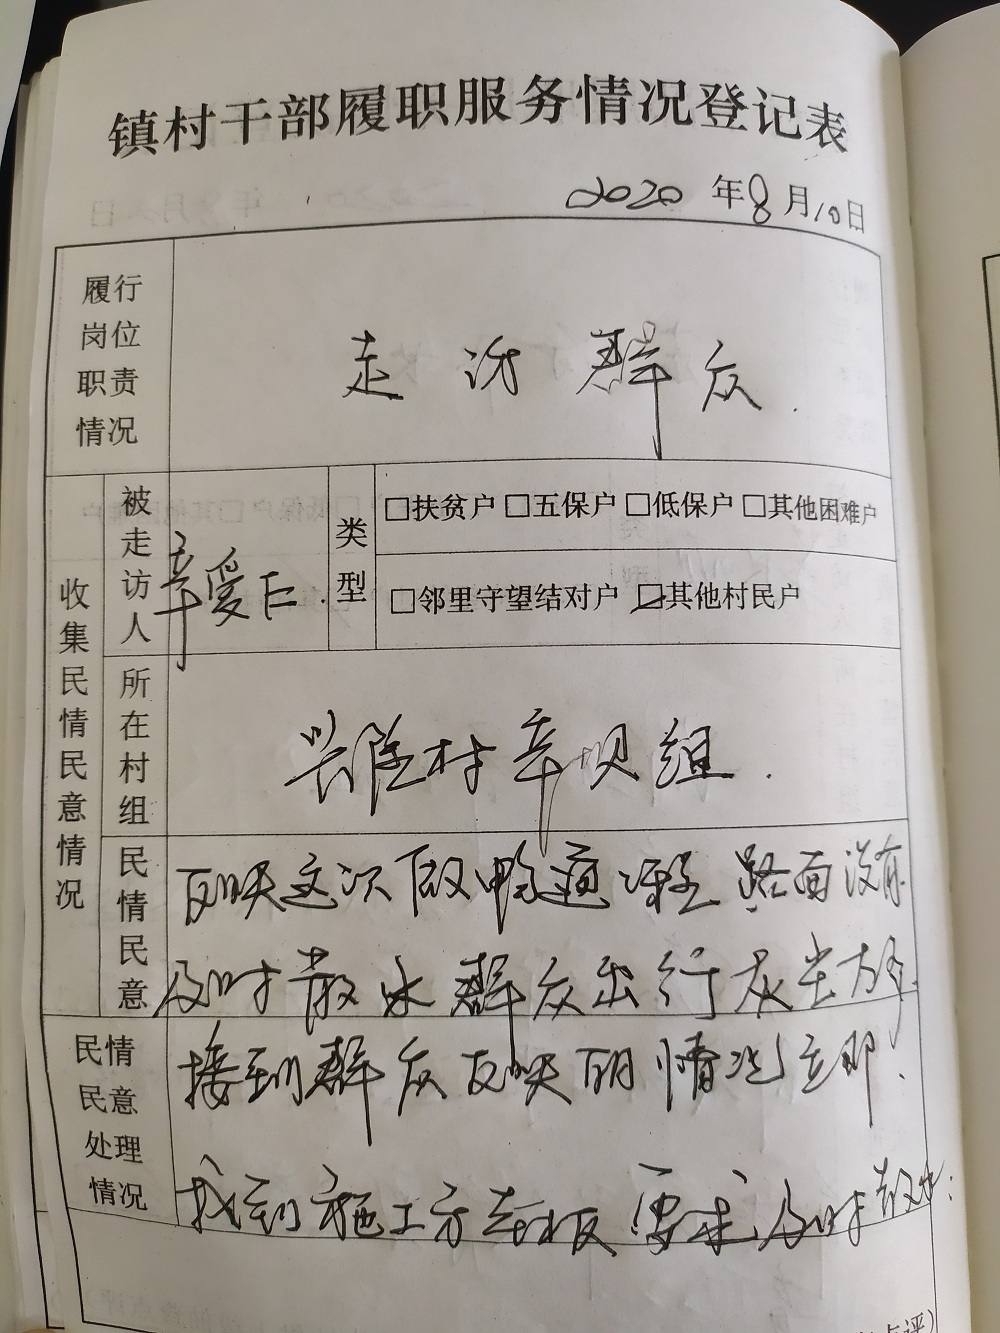 镇村干部履职服务情况登记表
2020年8月10日
履行岗位职责情况
走访群众.
收集民情民意情况
被走访人
辛爱仁.
类型
□扶贫户 □五保户 □低保户 □其他困难户
□邻里守望结对户 ☑其他村民户
所在村组
兴隆村辛坝组.
民情民意
反映这次 路面没有
及时散水群众出行灰尘大.
民情民意处理情况
接到群众反映 情况立即.
找到施工方老板要求及时散水:
点评)